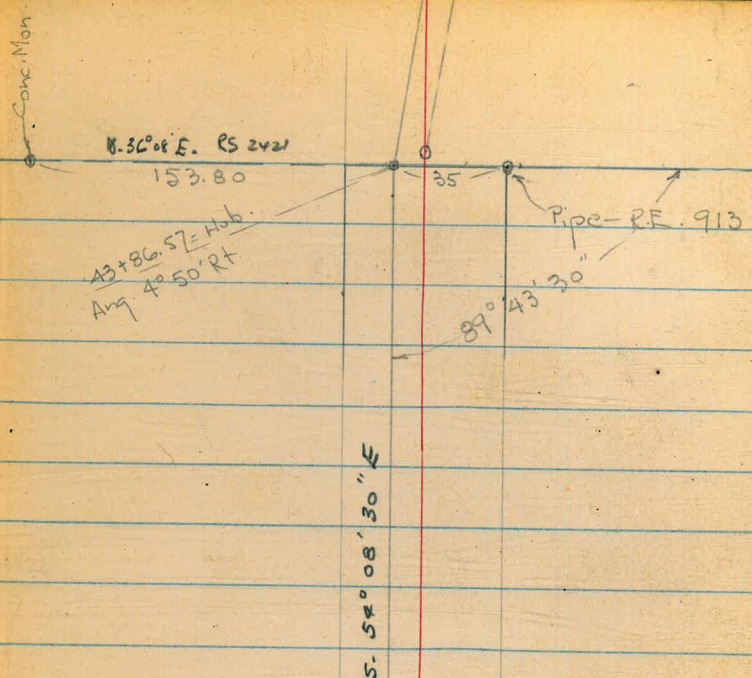 Conc. Mon.
N. 36° 08' E. RS 2421
153.80
35'
Pipe - R.E. 913
43+86.57 = Hub.
Ang. 4° 50' Rt.
89° 43' 30"
S. 54° 08' 30" E